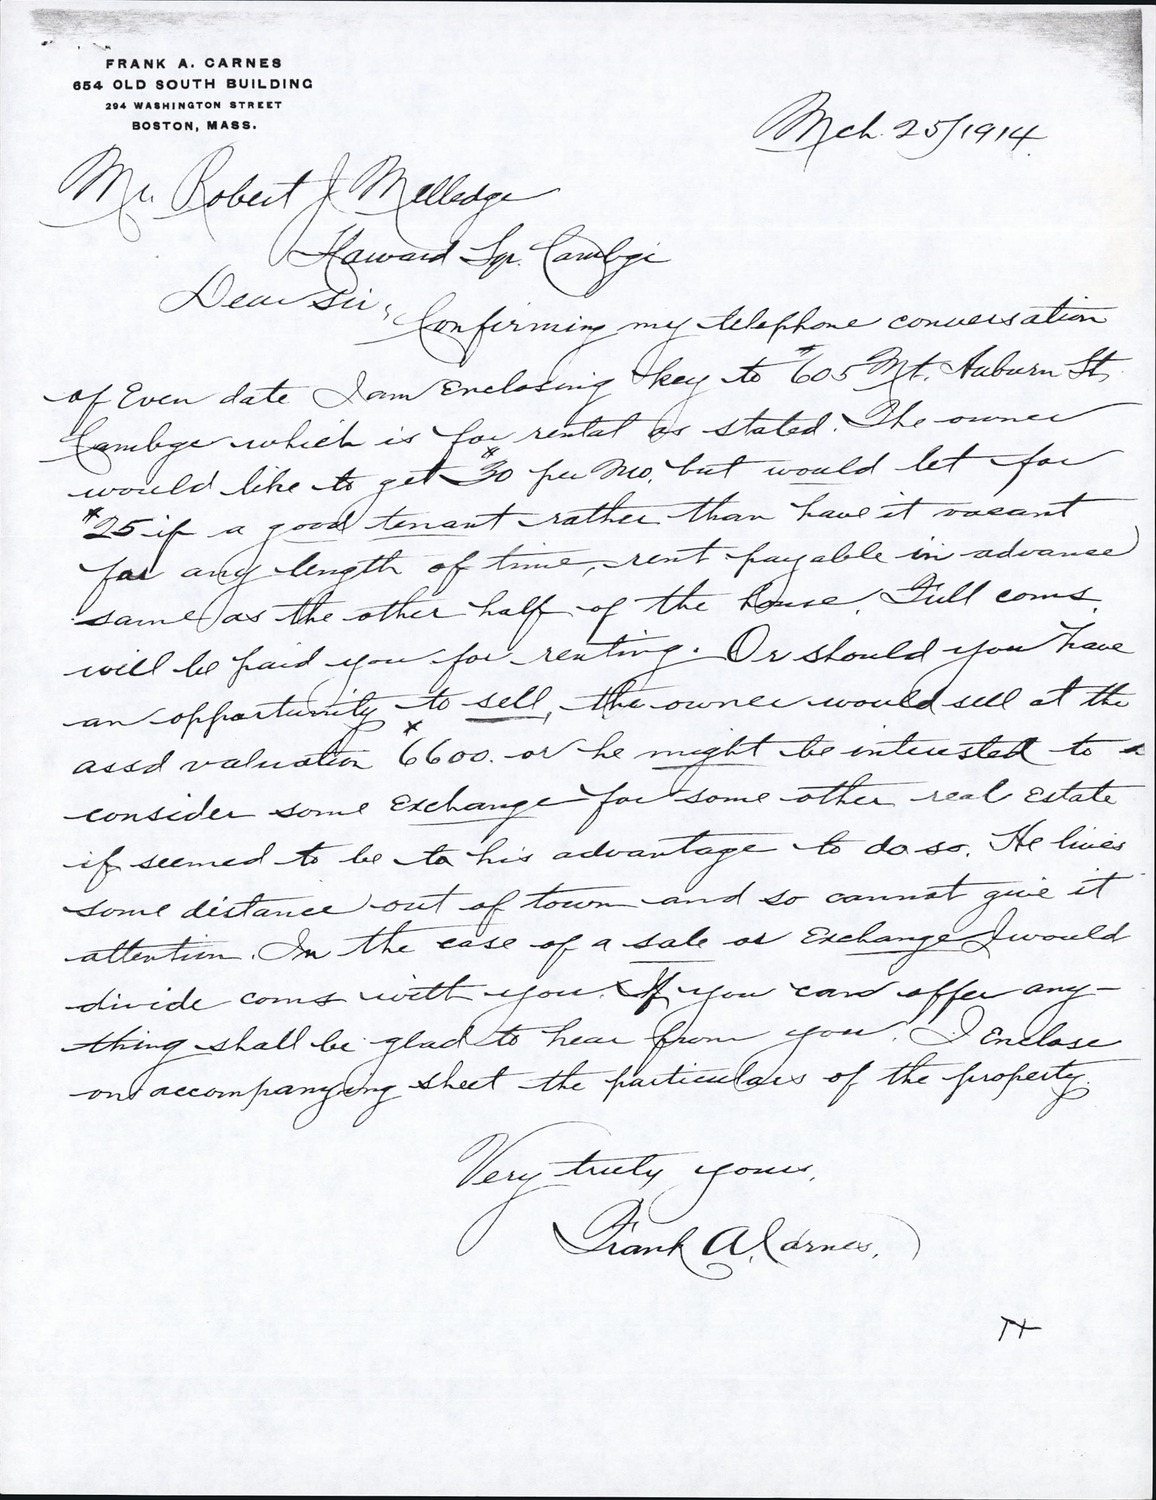 FRANK A. CARNES
654 OLD SOUTH BUILDING
294 WASHINGTON STREET
BOSTON, MASS.
Mch. 25/1914.
Mr. Robert J Melledge
Harvard Sqr. Cambge
Dear Sir;
Confirming my telephone conversation
of Even date I am Enclosing key to #605 Mt. Auburn St,
Cambge which is for rental as stated. The owner
would like to get $30 per Mo. but would let for
$25 if a good tenant rather than have it vacant
for any length of time, rent payable in advance
same as the other half of the house. Full coms.
will be paid you for renting. Or should you have
an opportunity to sell, the owner would sell at the
assd valuation $6600. or he might be interested to
consider some Exchange for some other real Estate
if seemed to be to his advantage to do so. He lives
some distance out of town and so cannot give it
attention. In the case of a sale or Exchange I would
divide coms with you. If you can offer any-
thing shall be glad to hear from you. I Enclose
on accompanying sheet the particulars of the property.
Very truly yours,
Frank A. Carnes.